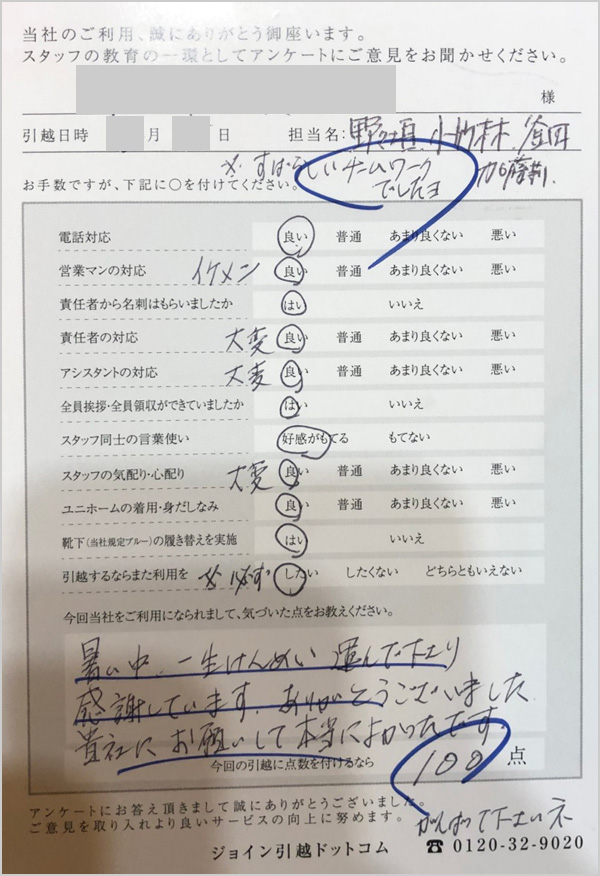 当社のご利用、誠にありがとう御座います。
スタッフの教育の一環としてアンケートにご意見をお聞かせください。
様
引越日時 月 日 担当名: 小竹林、釜田
※ すばらしいチームワーク 加藤
でしたヨ
お手数ですが、下記に〇を付けてください。
電話対応 良い 普通 あまり良くない 悪い
営業マンの対応 イケメン 良い 普通 あまり良くない 悪い
責任者から名刺はもらいましたか はい いいえ
責任者の対応 大変 良い 普通 あまり良くない 悪い
アシスタントの対応 大変 良い 普通 あまり良くない 悪い
全員挨拶・全員領収ができていましたか はい いいえ
スタッフ同士の言葉使い 好感がもてる もてない
スタッフの気配り・心配り 大変 良い 普通 あまり良くない 悪い
ユニホームの着用・身だしなみ 良い 普通 あまり良くない 悪い
靴下(当社規定ブルー)の履き替えを実施 はい いいえ
引越するならまた利用を 必ず したい したくない どちらともいえない
今回当社をご利用になられまして、気づいた点をお教えください。
暑い中、一生けんめい 運んで下さり
感謝しています。ありがとうございました
貴社にお願いして本当によかったです。
今回の引越に点数を付けるなら 100 点
アンケートにお答え頂きまして誠にありがとうございました。
ご意見を取り入れより良いサービスの向上に努めます。
がんばって下さいネ
ジョイン引越ドットコム ☎ 0120-32-9020